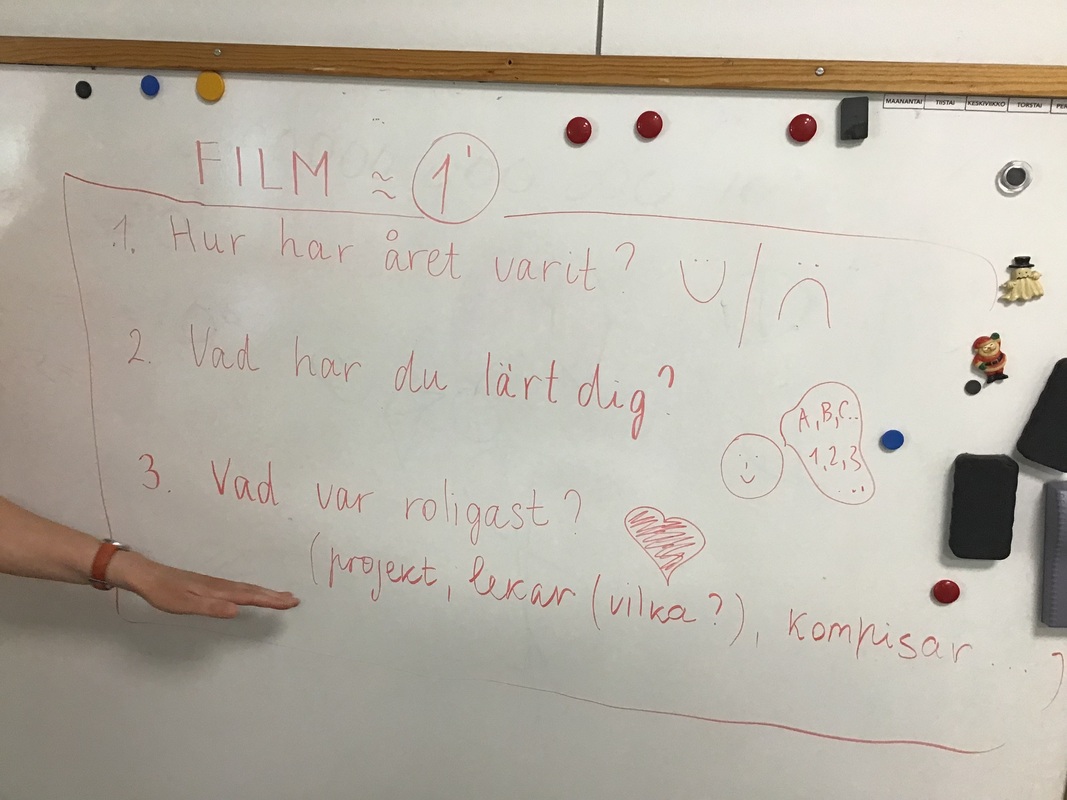 MAANANTAI TIISTAI KESKIVIIKKO TORSTAI
FILM ≈ 1'
1. Hur har året varit?
2. Vad har du lärt dig?
A, B, C..
1, 2, 3
...
3. Vad var roligast?
(projekt, lekar (vilka?), kompisar ....)